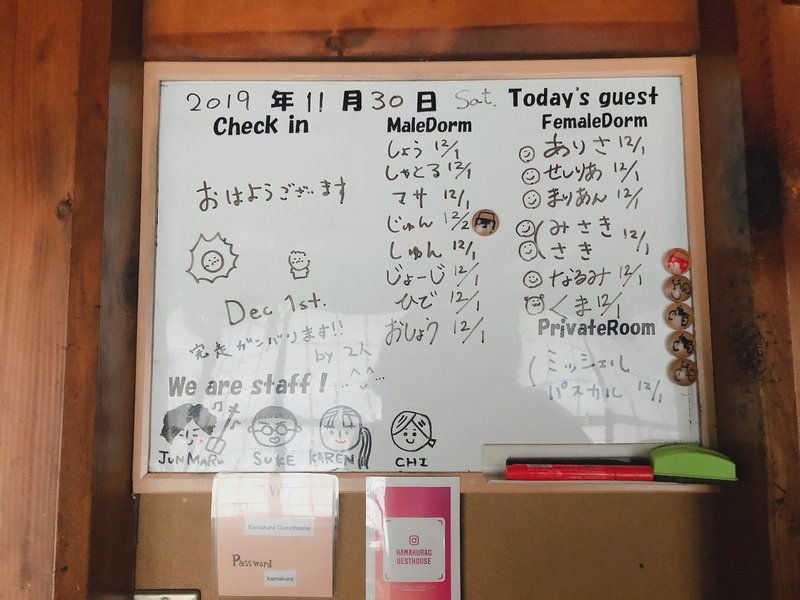 2019 年 11 月 30 日 Sat. Today's guest
Check in
おはようございます
Dec 1st.
完走ガンバります!!
by 2人
MaleDorm
しょう 12/1
しゃとる 12/1
マサ 12/1
じゅん 12/2
しゅん 12/1
じょーじ 12/1
ひで 12/1
おしょう 12/1
FemaleDorm
ありさ 12/1
せしりあ 12/1
まりあん 12/1
みさき
さき 12/1
なるみ 12/1
くま 12/1
PrivateRoom
ミッシェル
パスカル 12/1
We are staff!
JUNMARU SUKE KAREN CHI
Kamakura Guesthouse
Password
kamakura
KAMAKURAG
UESTHOUSE